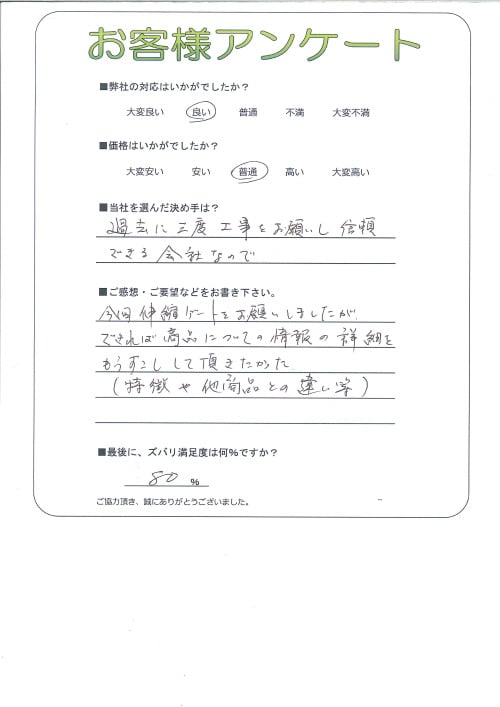 お客様アンケート
■弊社の対応はいかがでしたか？
大変良い 良い 普通 不満 大変不満
■価格はいかがでしたか？
大変安い 安い 普通 高い 大変高い
■当社を選んだ決め手は？
過去に三度工事をお願いし信頼
できる会社なので
■ご感想・ご要望などをお書き下さい。
今回伸縮ゲートをお願いしましたが、
できれば商品についての情報の詳細を
もうすこしして頂きたかった
(特徴や他商品との違い等)
■最後に、ズバリ満足度は何%ですか？
80 %
ご協力頂き、誠にありがとうございました。